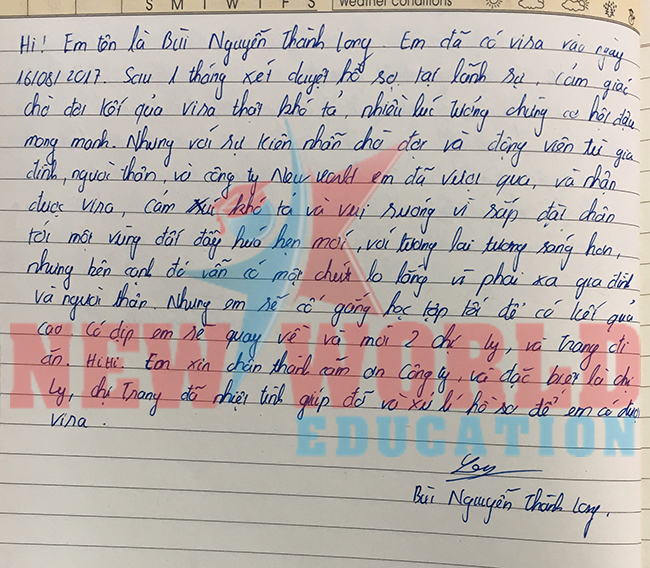 S M T W T F S Weather conditions
Hi! Em tên là Bùi Nguyễn Thành Long. Em đã có visa vào ngày
16/08/2017. Sau 1 tháng xét duyệt hồ sơ tại lãnh sự, cảm giác
chờ đợi kết quả visa thật khó tả, nhiều lúc tưởng chừng cơ hội đậu
mong manh. Nhưng với sự kiên nhẫn chờ đợi và động viên từ gia
đình, người thân, và công ty New world em đã vượt qua, và nhận
được visa, cảm xúc khó tả và vui sướng vì sắp đặt chân
tới một vùng đất đầy hứa hẹn mới, với tương lai tương sáng hơn,
nhưng bên cạnh đó vẫn có một chút lo lắng vì phải xa gia đình
và người thân. Nhưng em sẽ cố gắng học tập tốt để có kết quả
cao. Có dịp em sẽ quay về và mời 2 chị Ly, và Trang đi
ăn. HiHi. Em xin chân thành cảm ơn Công ty, và đặc biệt là chị
Ly, chị Trang đã nhiệt tình giúp đỡ và xử lí hồ sơ để em có được
visa.
NEW WORLD
EDUCATION
Long
Bùi Nguyễn Thành Long.